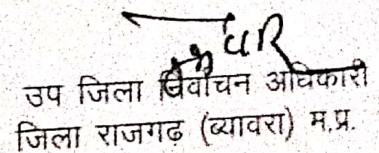 उप जिला निर्वाचन अधिकारी
जिला राजगढ़ (ब्यावरा) म.प्र.